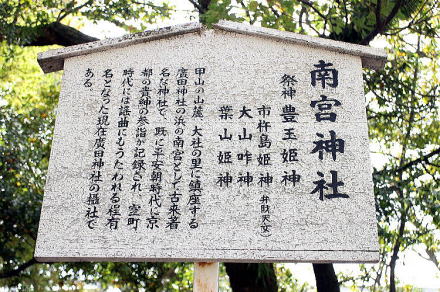 南宮神社
祭神 豊玉姫神
市杵島姫神 (弁財天女)
大山咋神
葉山姫神
甲山の山麓、大社の里に鎮座する
廣田神社の浜の南宮として古来著
名な神社で、既に平安朝時代に京
都の貴紳の参詣が記録され、室町
時代には謡曲にもうたわれる程有
名となった現在廣田神社の摂社で
ある。